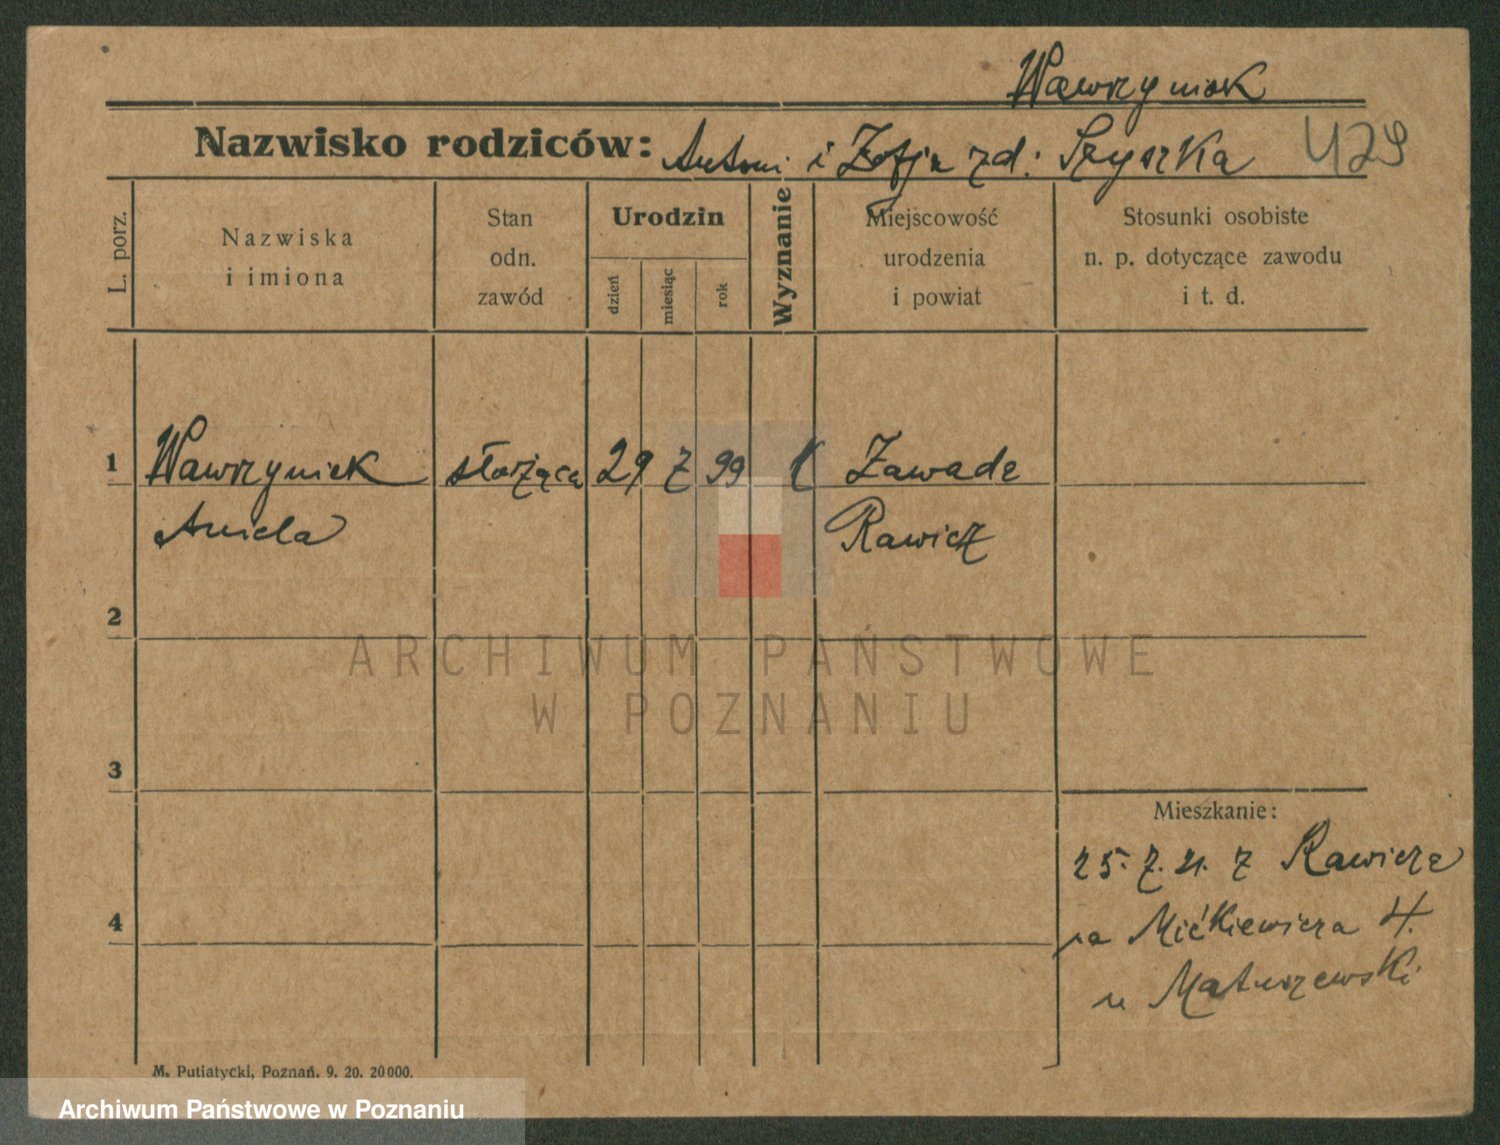 Wawrzyniak
Nazwisko rodziców: Antoni i Zofja zd: Szyszka 429
L. porz.
Nazwiska
i imiona
Stan
odn.
zawód
Urodzin
dzień
miesiąc
rok
Wyznanie
Miejscowość
urodzenia
i powiat
Stosunki osobiste
n. p. dotyczące zawodu
i t. d.
1 Wawrzyniak służąca 29 7 99 K Zawade
Aniela Rawicz
2
ARCHIWUM PAŃSTWOWE
W POZNANIU
3
Mieszkanie:
25. 7. 21. z Rawicza
na Mićkiewicza 4.
4
u Matuszewski
M. Putiatycki, Poznań. 9. 20. 20000.
Archiwum Państwowe w Poznaniu